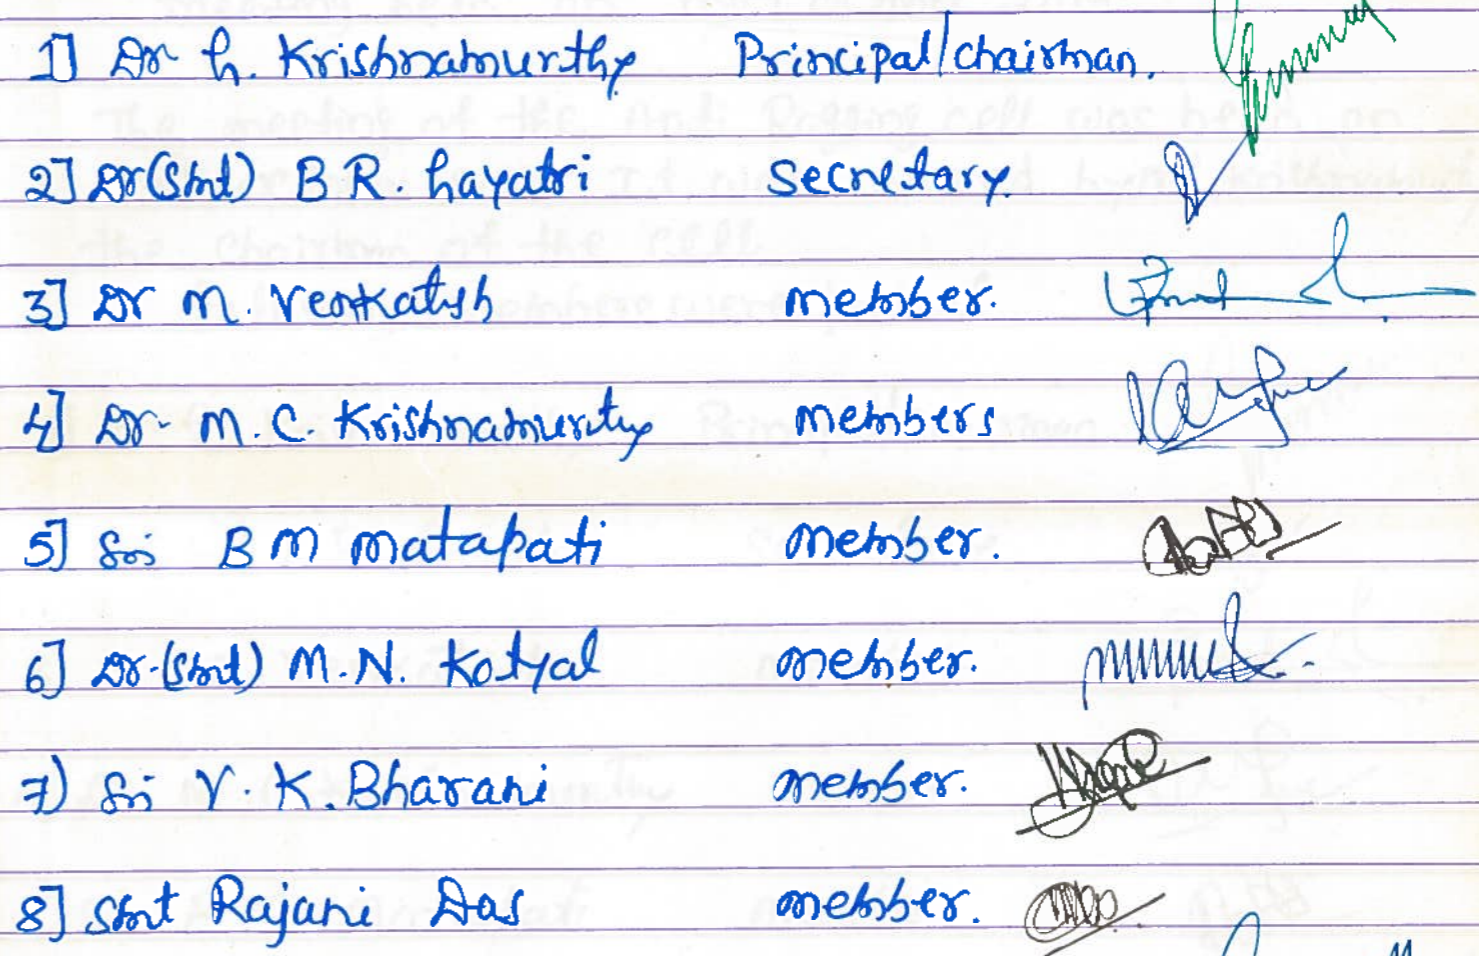 1] Dr G. Krishnamurthy Principal/chairman.
2] Dr(Smt) B R. Gayatri Secretary.
3] Dr M. Venkatesh member.
4] Dr. M.C. Krishnamurty members
5] Sri B M Matapati member.
6] Dr.(Smt) M.N. Kotyal member.
7) Sri V. K. Bharani member.
8] Smt Rajani Das member.